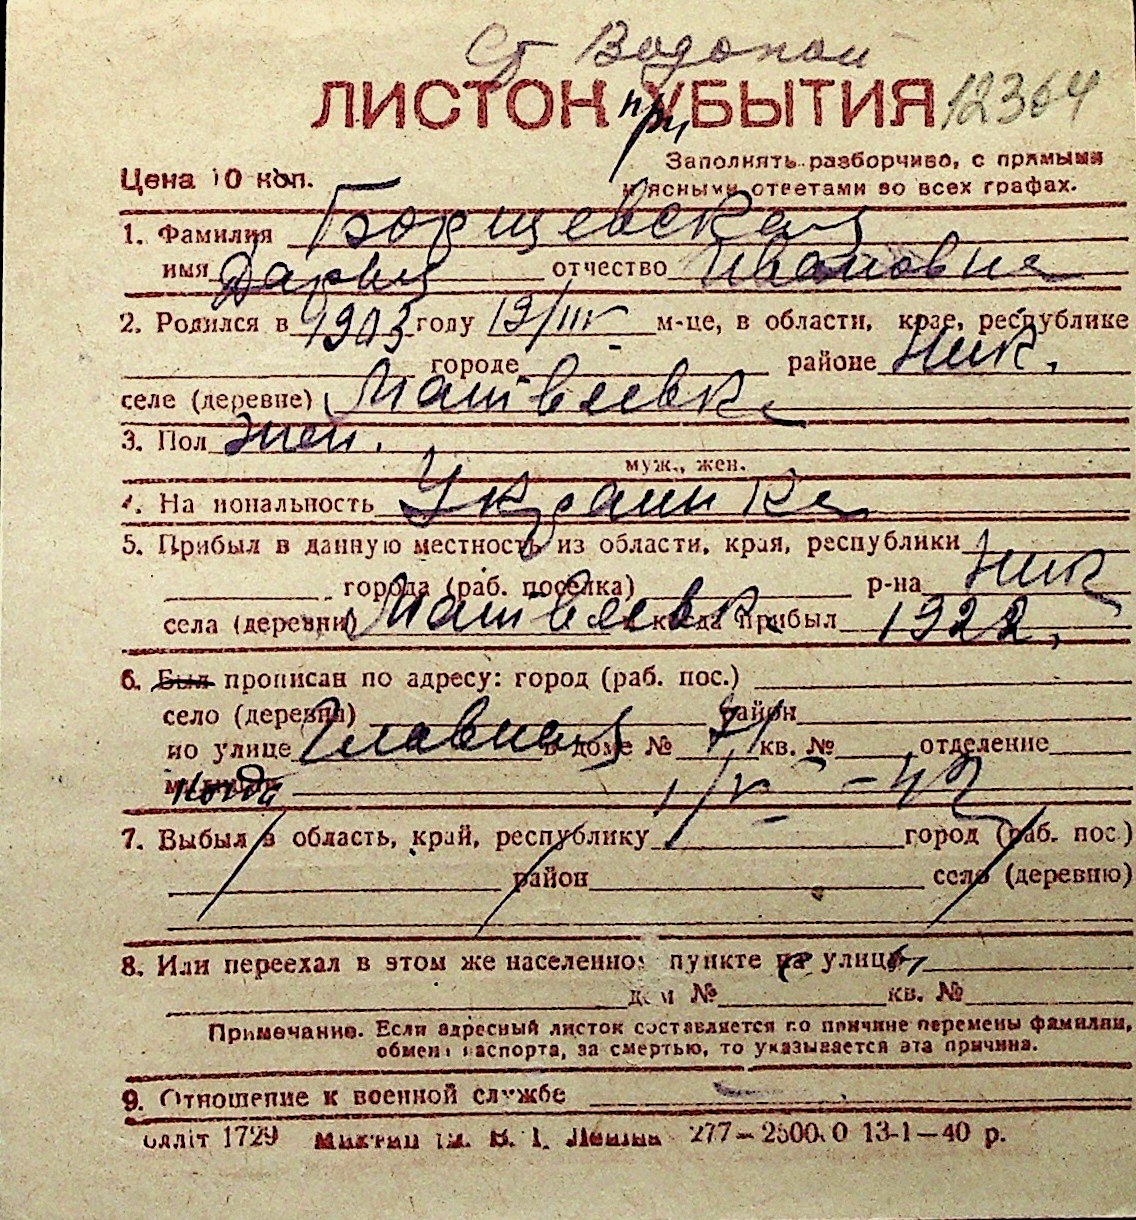 Ст Водопой
ЛИСТОК при УБЫТИЯ 12364
Цена 10 коп.
Заполнять разборчиво, с прямыми
и ясными ответами во всех графах.
1. Фамилия Борщевская
имя Дарья отчество Ивановна
2. Родился в 1903 году 19/III м-це, в области, крае, республике
городе районе Ник.
селе (деревне) Матвеевка
3. Пол жен.
муж., жен.
4. Национальность Украинка
5. Прибыл в данную местность из области, края, республики
города (раб. поселка) р-на Ник
села (деревни) Матвеевка когда прибыл 1922,
6. Был прописан по адресу: город (раб. пос.)
село (деревня) район
по улице Главная в доме № 71 кв. № отделение
милиции когда 1/V - 42
7. Выбыл в область, край, республику город (раб. пос.)
район село (деревню)
8. Или переехал в этом же населенном пункте на улицу
дом № кв. №
Примечание. Если адресный листок составляется по причине перемены фамилии,
обмена паспорта, за смертью, то указывается эта причина.
9. Отношение к военной службе
1729 ім. В. І. Леніна 277—25000 13-1—40 р.